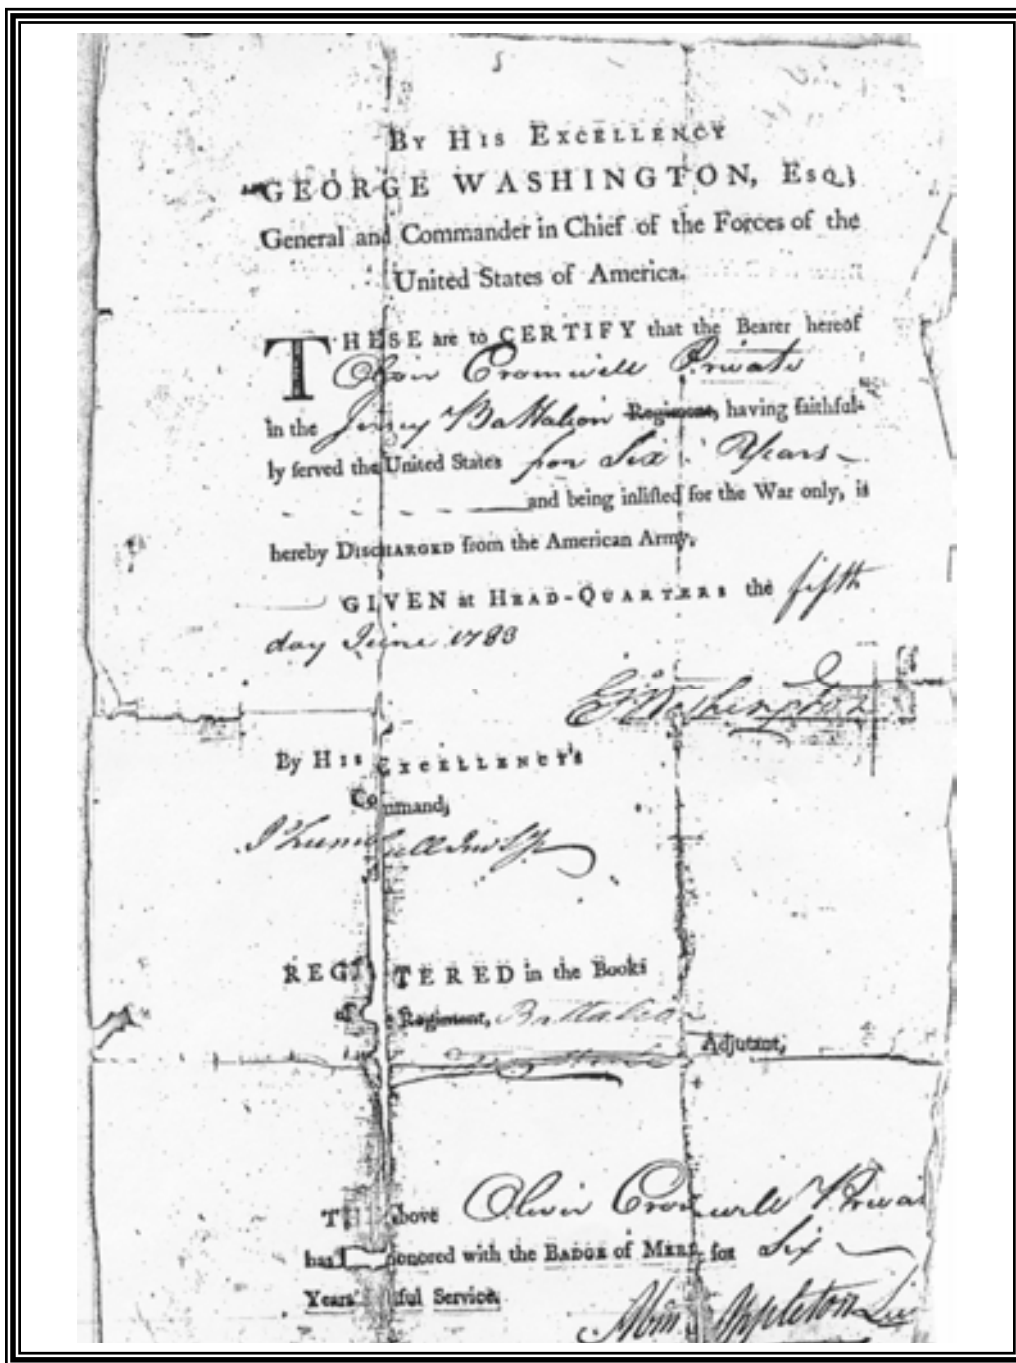 By His Excellency
GEORGE WASHINGTON, Esq;
General and Commander in Chief of the Forces of the
United States of America.
THESE are to CERTIFY that the Bearer hereof
Oliver Cromwell Private
in the Jersey Battalion Regiment, having faithful-
ly ſerved the United States for Six Years
and being inliſted for the War only, is
hereby Discharged from the American Army.
GIVEN at Head-Quarters the fifth
day June 1783
G Washington
By His Excellency's
Command,
REGISTERED in the Books
Regiment, Battalion
Adjutant,
bove Oliver Cromwell Privat
has onored with the Badge of Merit for Six
Years' ful Service.
Appleton